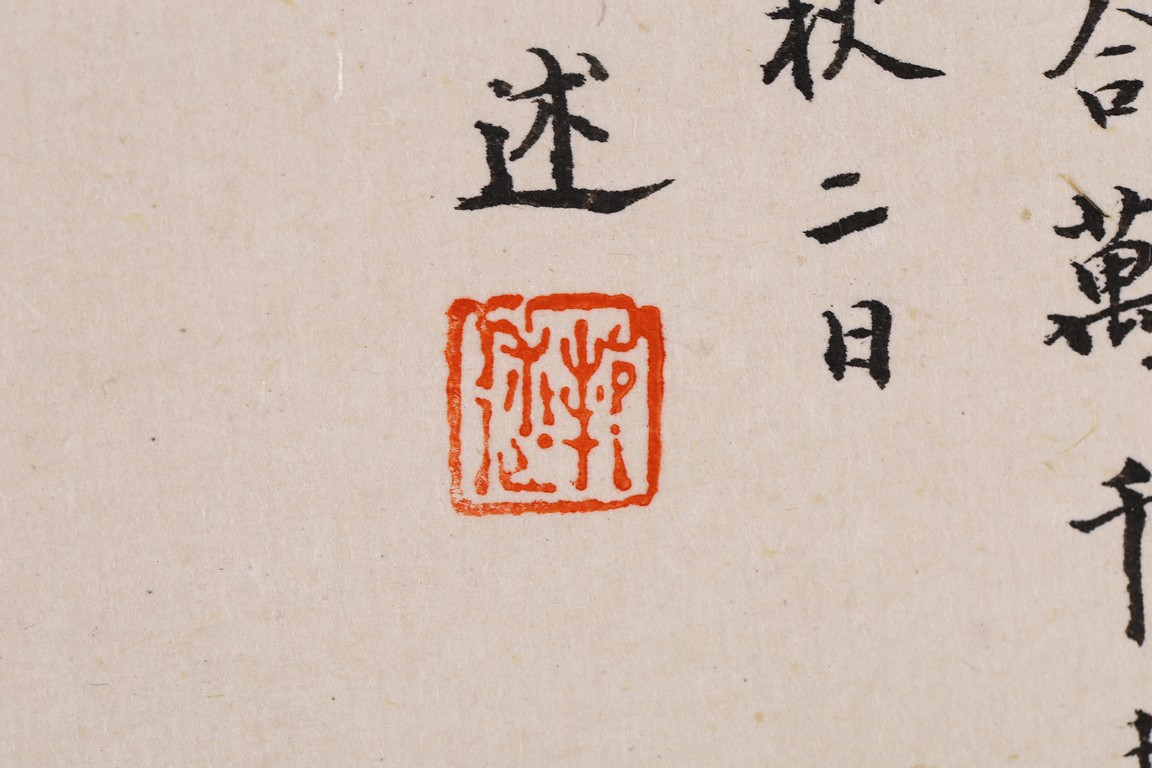 合萬千
秋二日
述